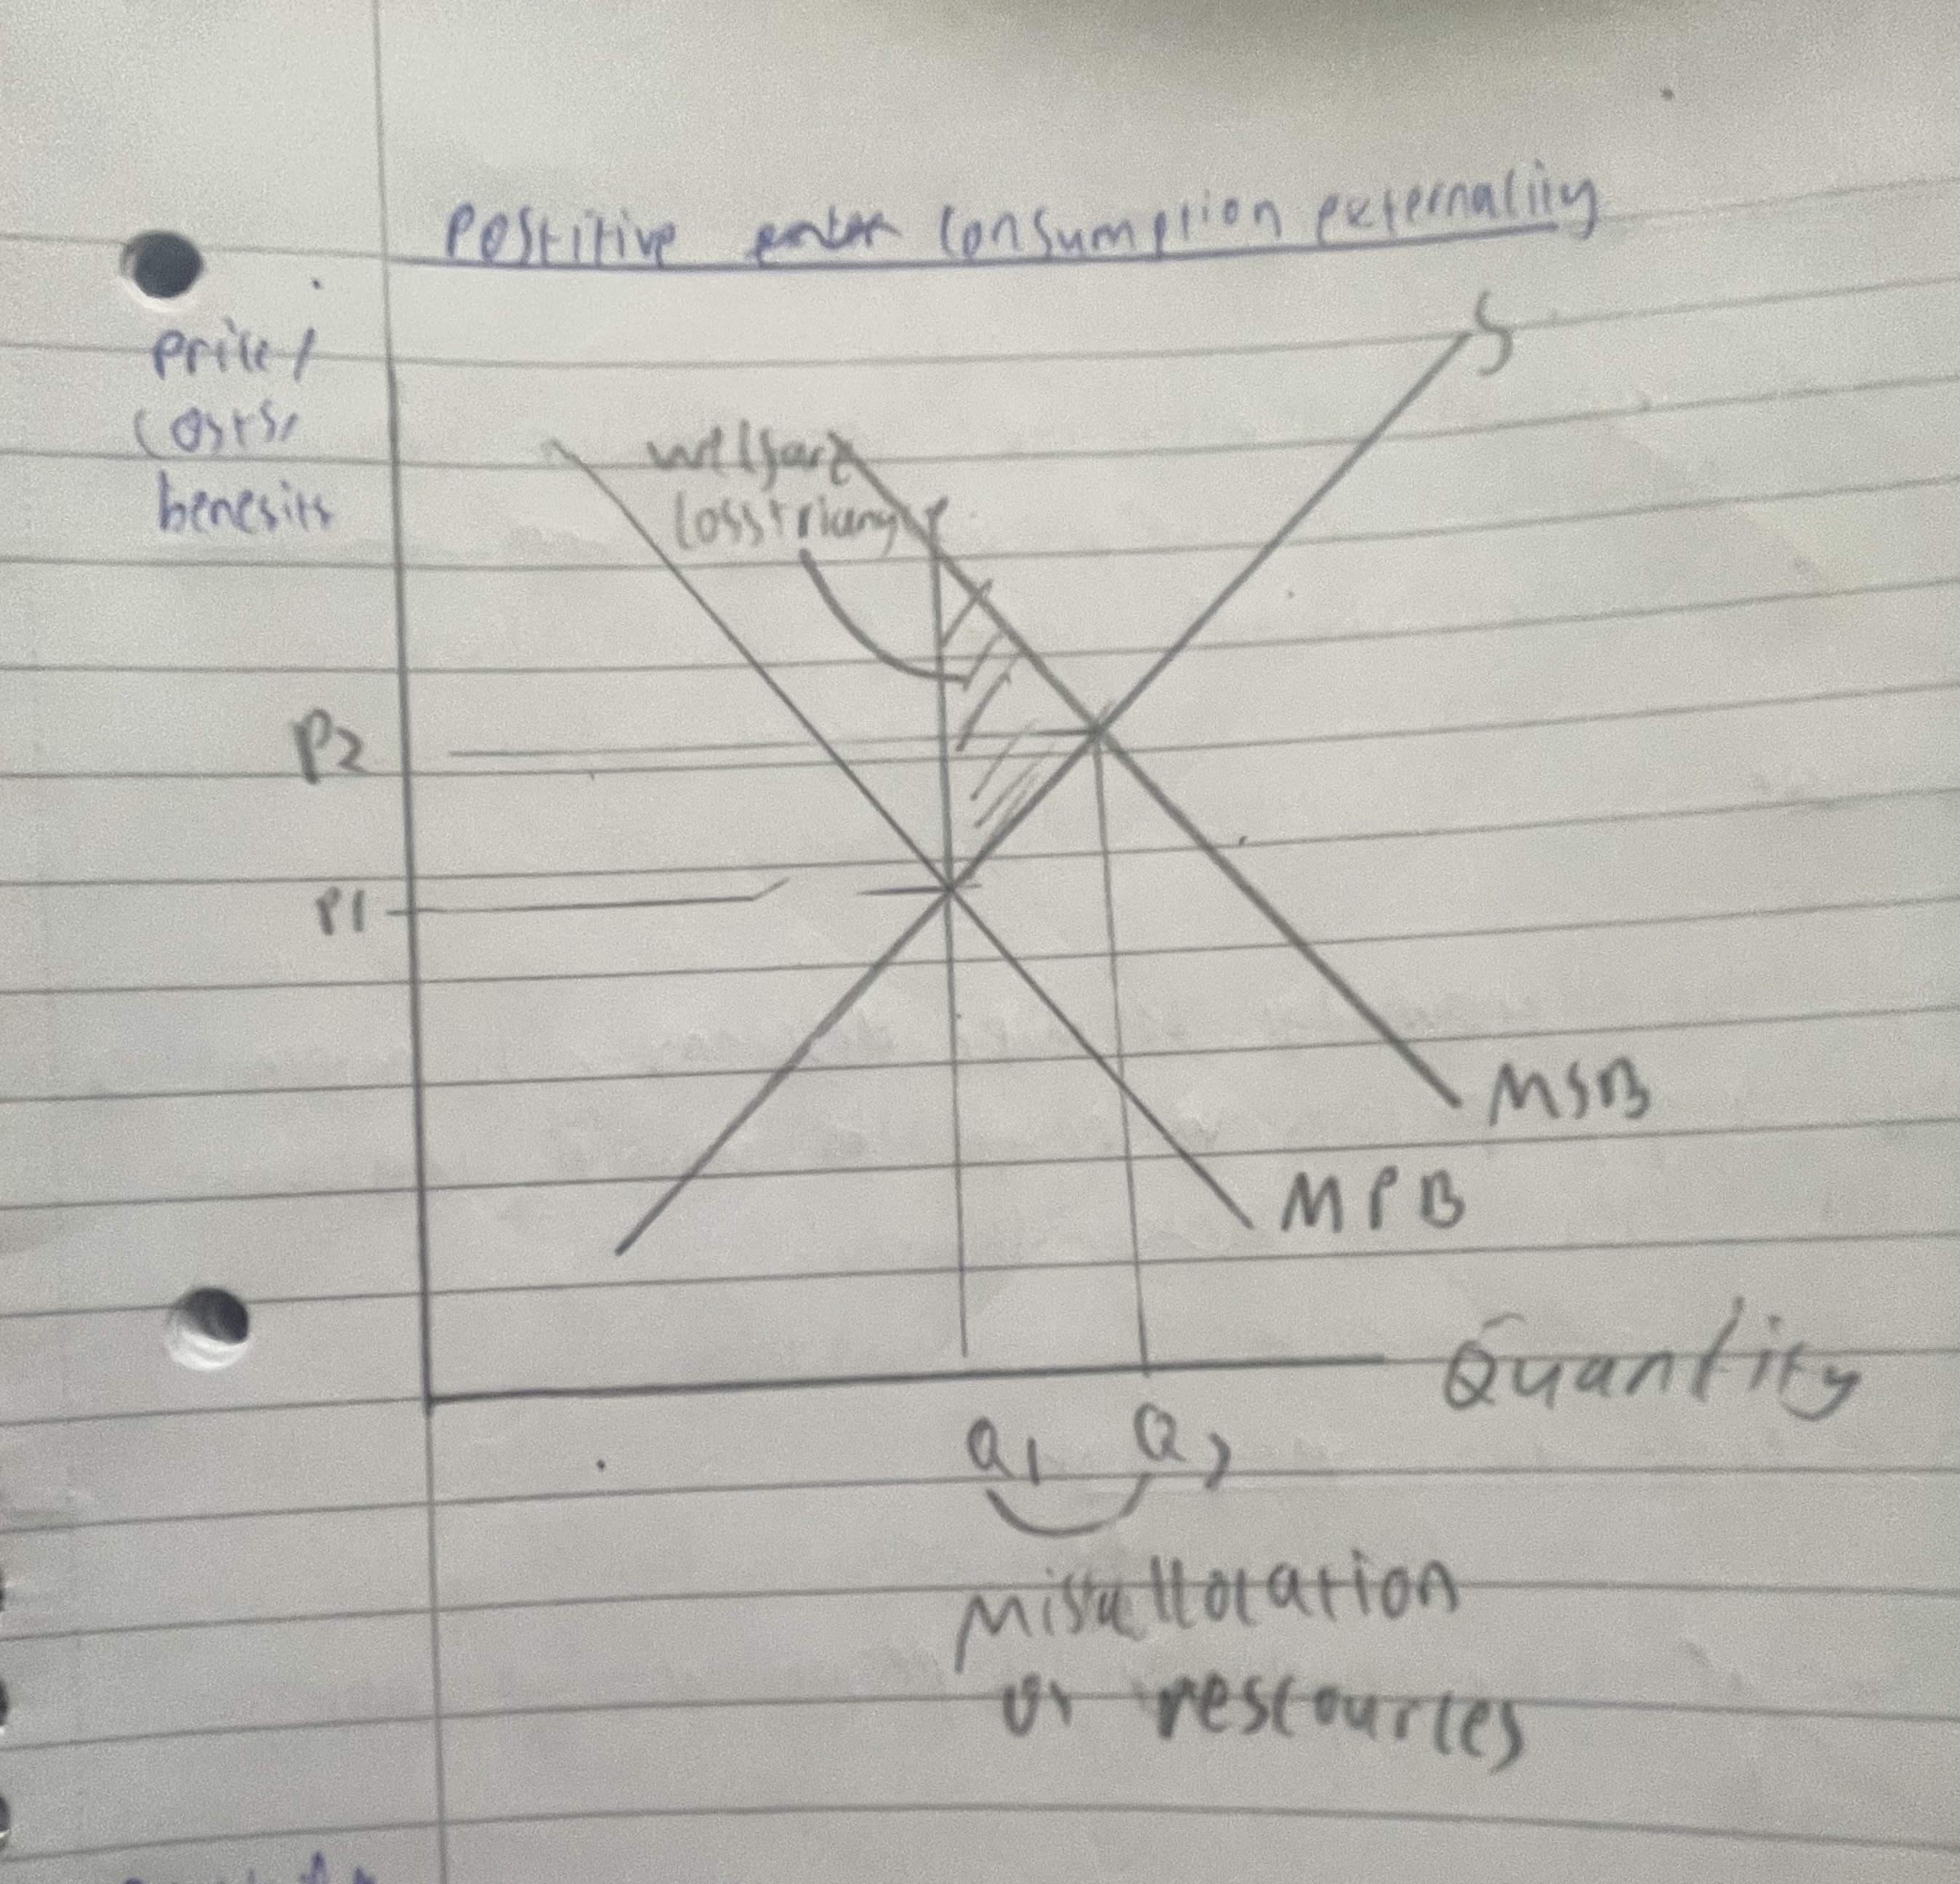 Postitive consumption externality
Price/
costs/
benefits
S
welfare
loss triangle
P2
P1
MSB
MPB
Quantity
Q1 Q2
Misallocation
of rescources